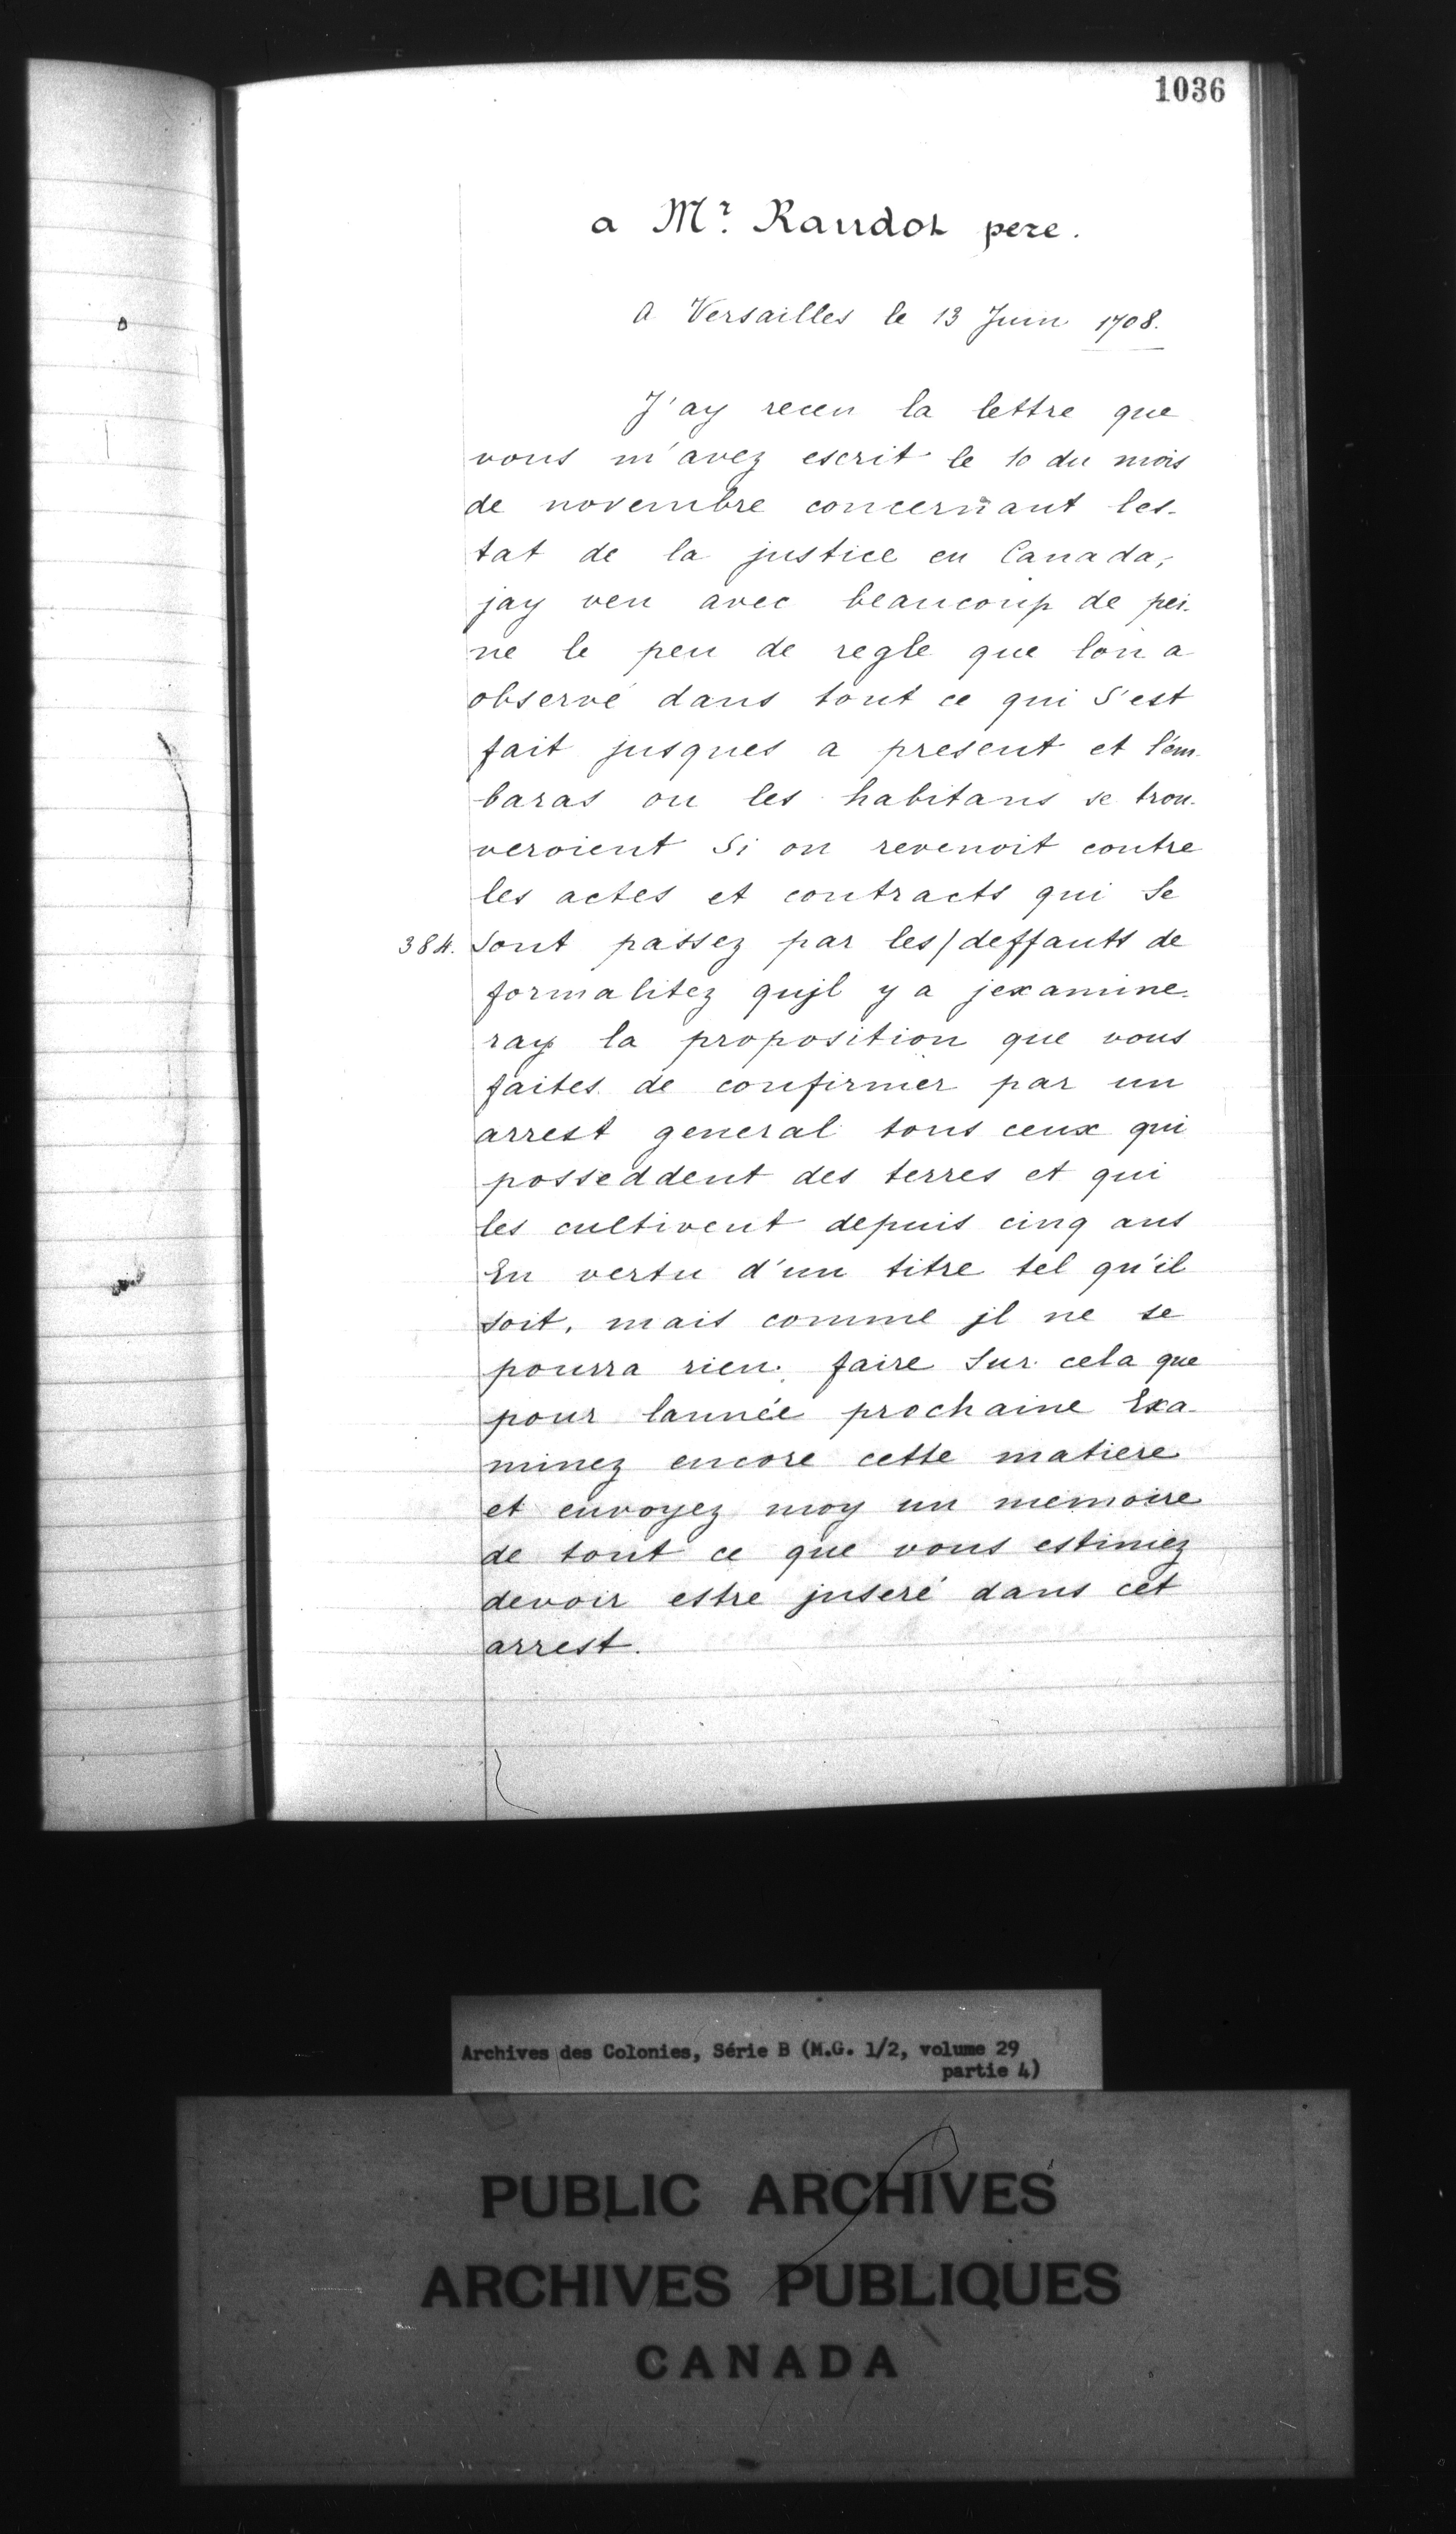 1036
a Mr. Raudot pere.
A Versailles le 13 Juin 1708.
J'ay receu la lettre que
vous m'avez escrit le 10 du mois
de novembre concernant les-
tat de la justice en Canada,
jay veu avec beaucoup de pei-
ne le peu de regle que lon a
observé dans tout ce qui S'est
fait jusques a present et l'em-
baras ou les habitans se trou-
veroient Si on revenoit contre
les actes et contracts qui Se
384. Sont passez par les/deffauts de
formalitez qujl y a jexamine-
ray la proposition que vous
faites de confirmer par un
arrest general tous ceux qui
posseddent des terres et qui
les cultivent depuis cinq ans
En vertu d'un titre tel qu'il
soit, mais comme jl ne se
pourra rien faire Sur cela que
pour lannée prochaine Exa-
minez encore cette matiere
et envoyez moy un memoire
de tout ce que vous estimez
devoir estre jnseré dans cet
arrest.
Archives des Colonies, Série B (M.G. 1/2, volume 29
partie 4)
PUBLIC ARCHIVES
ARCHIVES PUBLIQUES
CANADA